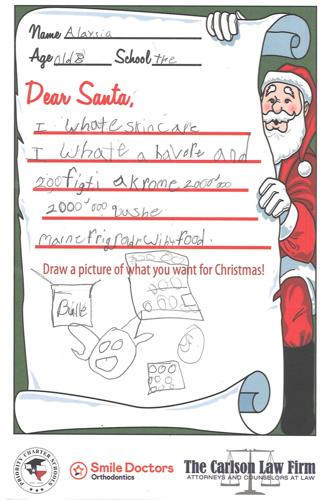 Name Alaysia
Age old 8 School the
Dear Santa,
I whate skin care
I whate a bavore and
figti a krome 2000'00
2000'000 bushe
mame frig food
Draw a picture of what you want for Christmas!
Bulle
PRIORITY CHARTER SCHOOLS
Smile Doctors
Orthodontics
The Carlson Law Firm
ATTORNEYS AND COUNSELORS AT LAW